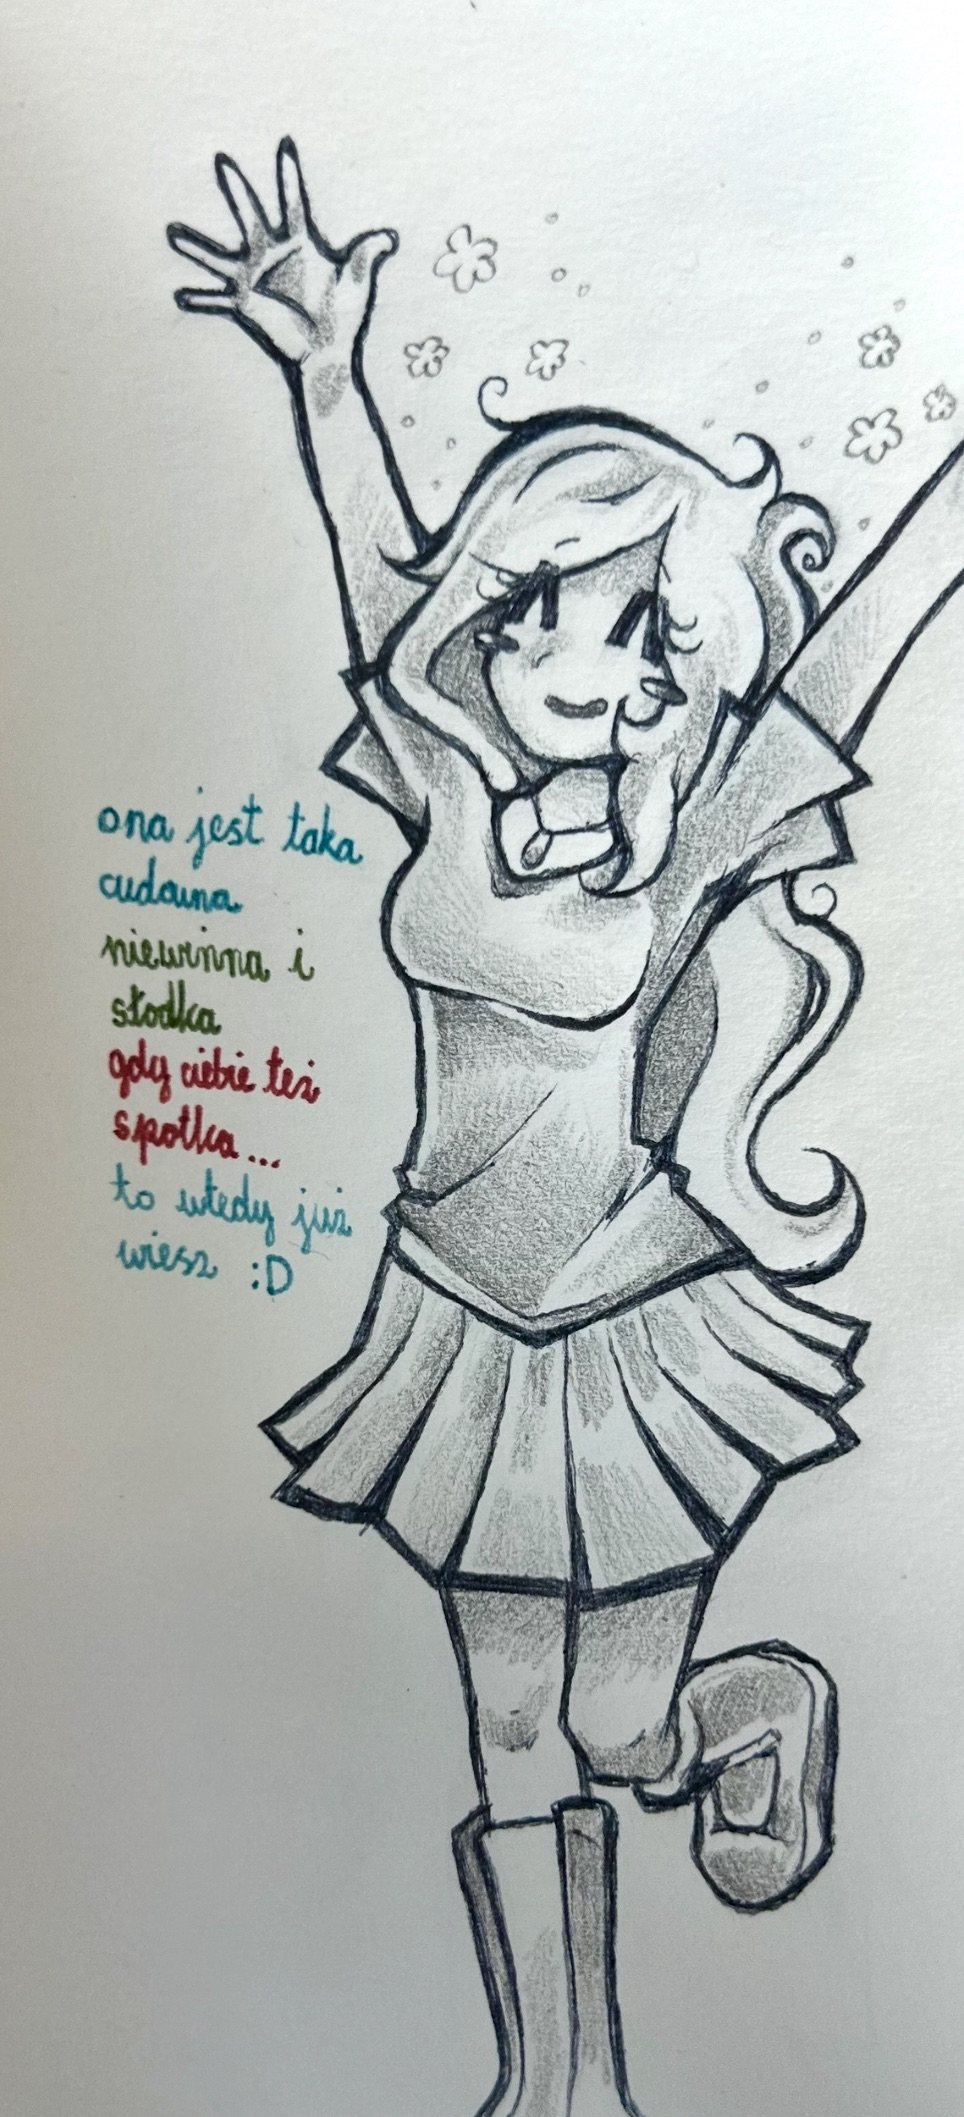 ona jest taka
cudowna
niewinna i
słodka
gdy ciebie też
spotka...
to wtedy już
wiesz :D